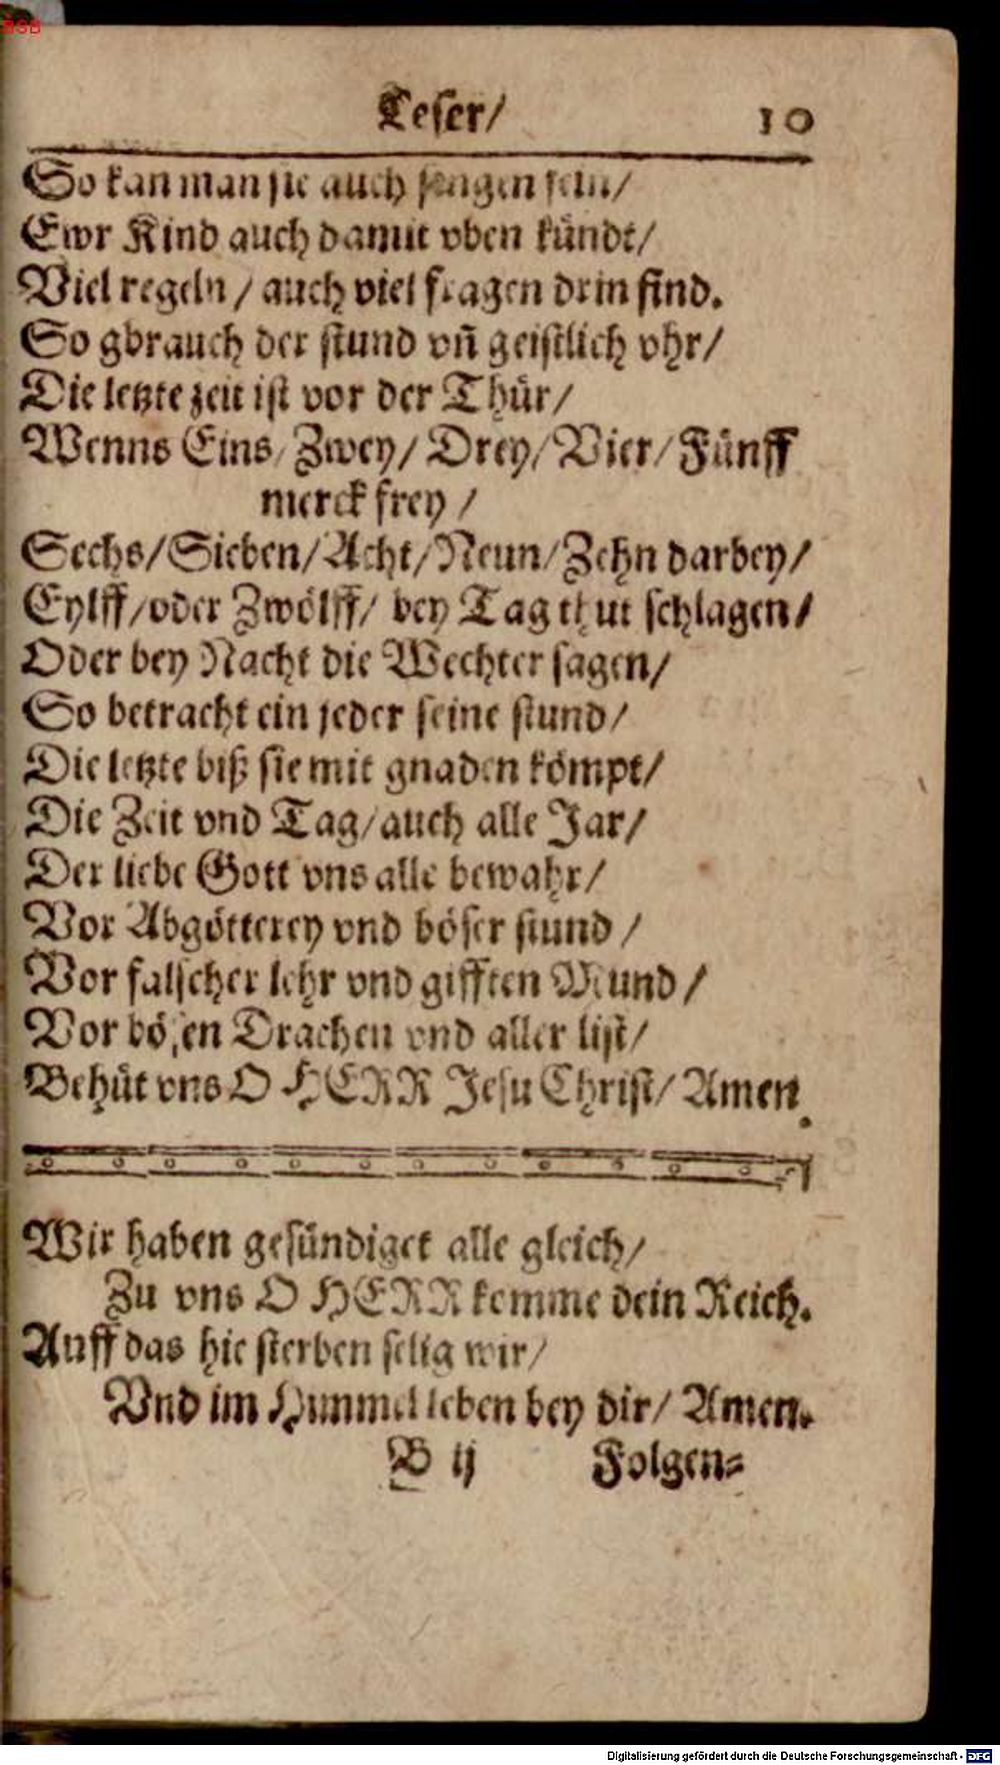 BSB
Leser/ 10
So kan man sie auch singen fein/
Ewr Kind auch damit vben kündt/
Viel regeln / auch viel fragen drin sind.
So gbrauch der stund vñ geistlich vhr/
Die letzte zeit ist vor der Thür/
Wenns Eins/ Zwey/ Drey/ Vier/ Fünff
merck frey /
Sechs/ Sieben/ Acht/ Neun/ Zehn darbey/
Eylff/ oder Zwölff/ bey Tag thut schlagen/
Oder bey Nacht die Wechter sagen/
So betracht ein jeder seine stund/
Die letzte biß sie mit gnaden kömpt/
Die Zeit vnd Tag/ auch alle Jar/
Der liebe Gott vns alle bewahr/
Vor Abgötterey vnd böser stund /
Vor falscher lehr vnd gifften Mund /
Vor bösen Drachen vnd aller list/
Behüt vns O HERR Jesu Christ/ Amen.
Wir haben gesündiget alle gleich/
Zu vns O HERR komme dein Reich.
Auff das hie sterben selig wir/
Vnd im Himmel leben bey dir/ Amen.
B ij Folgen=
Digitalisierung gefördert durch die Deutsche Forschungsgemeinschaft - DFG